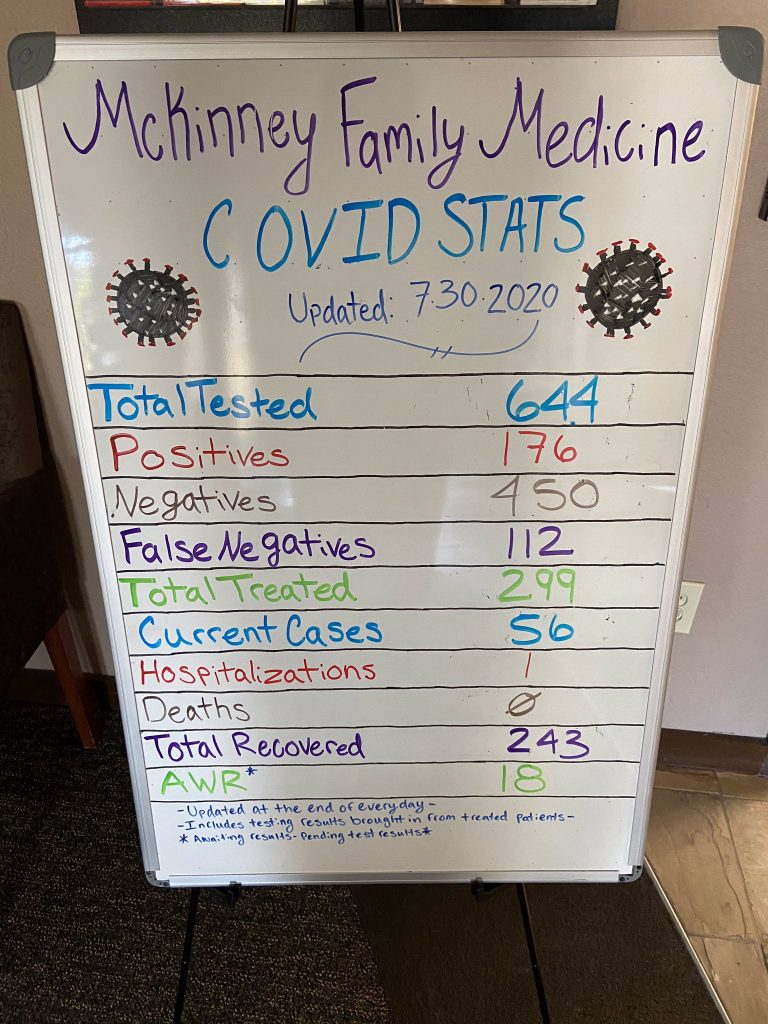 McKinney Family Medicine
COVID STATS
Updated: 7.30.2020
Total Tested 644
Positives 176
Negatives 450
False Negatives 112
Total Treated 299
Current Cases 56
Hospitalizations 1
Deaths 0
Total Recovered 243
AWR* 18
-Updated at the end of everyday-
-Includes testing results brought in from treated patients-
* Awaiting results- pending test results*